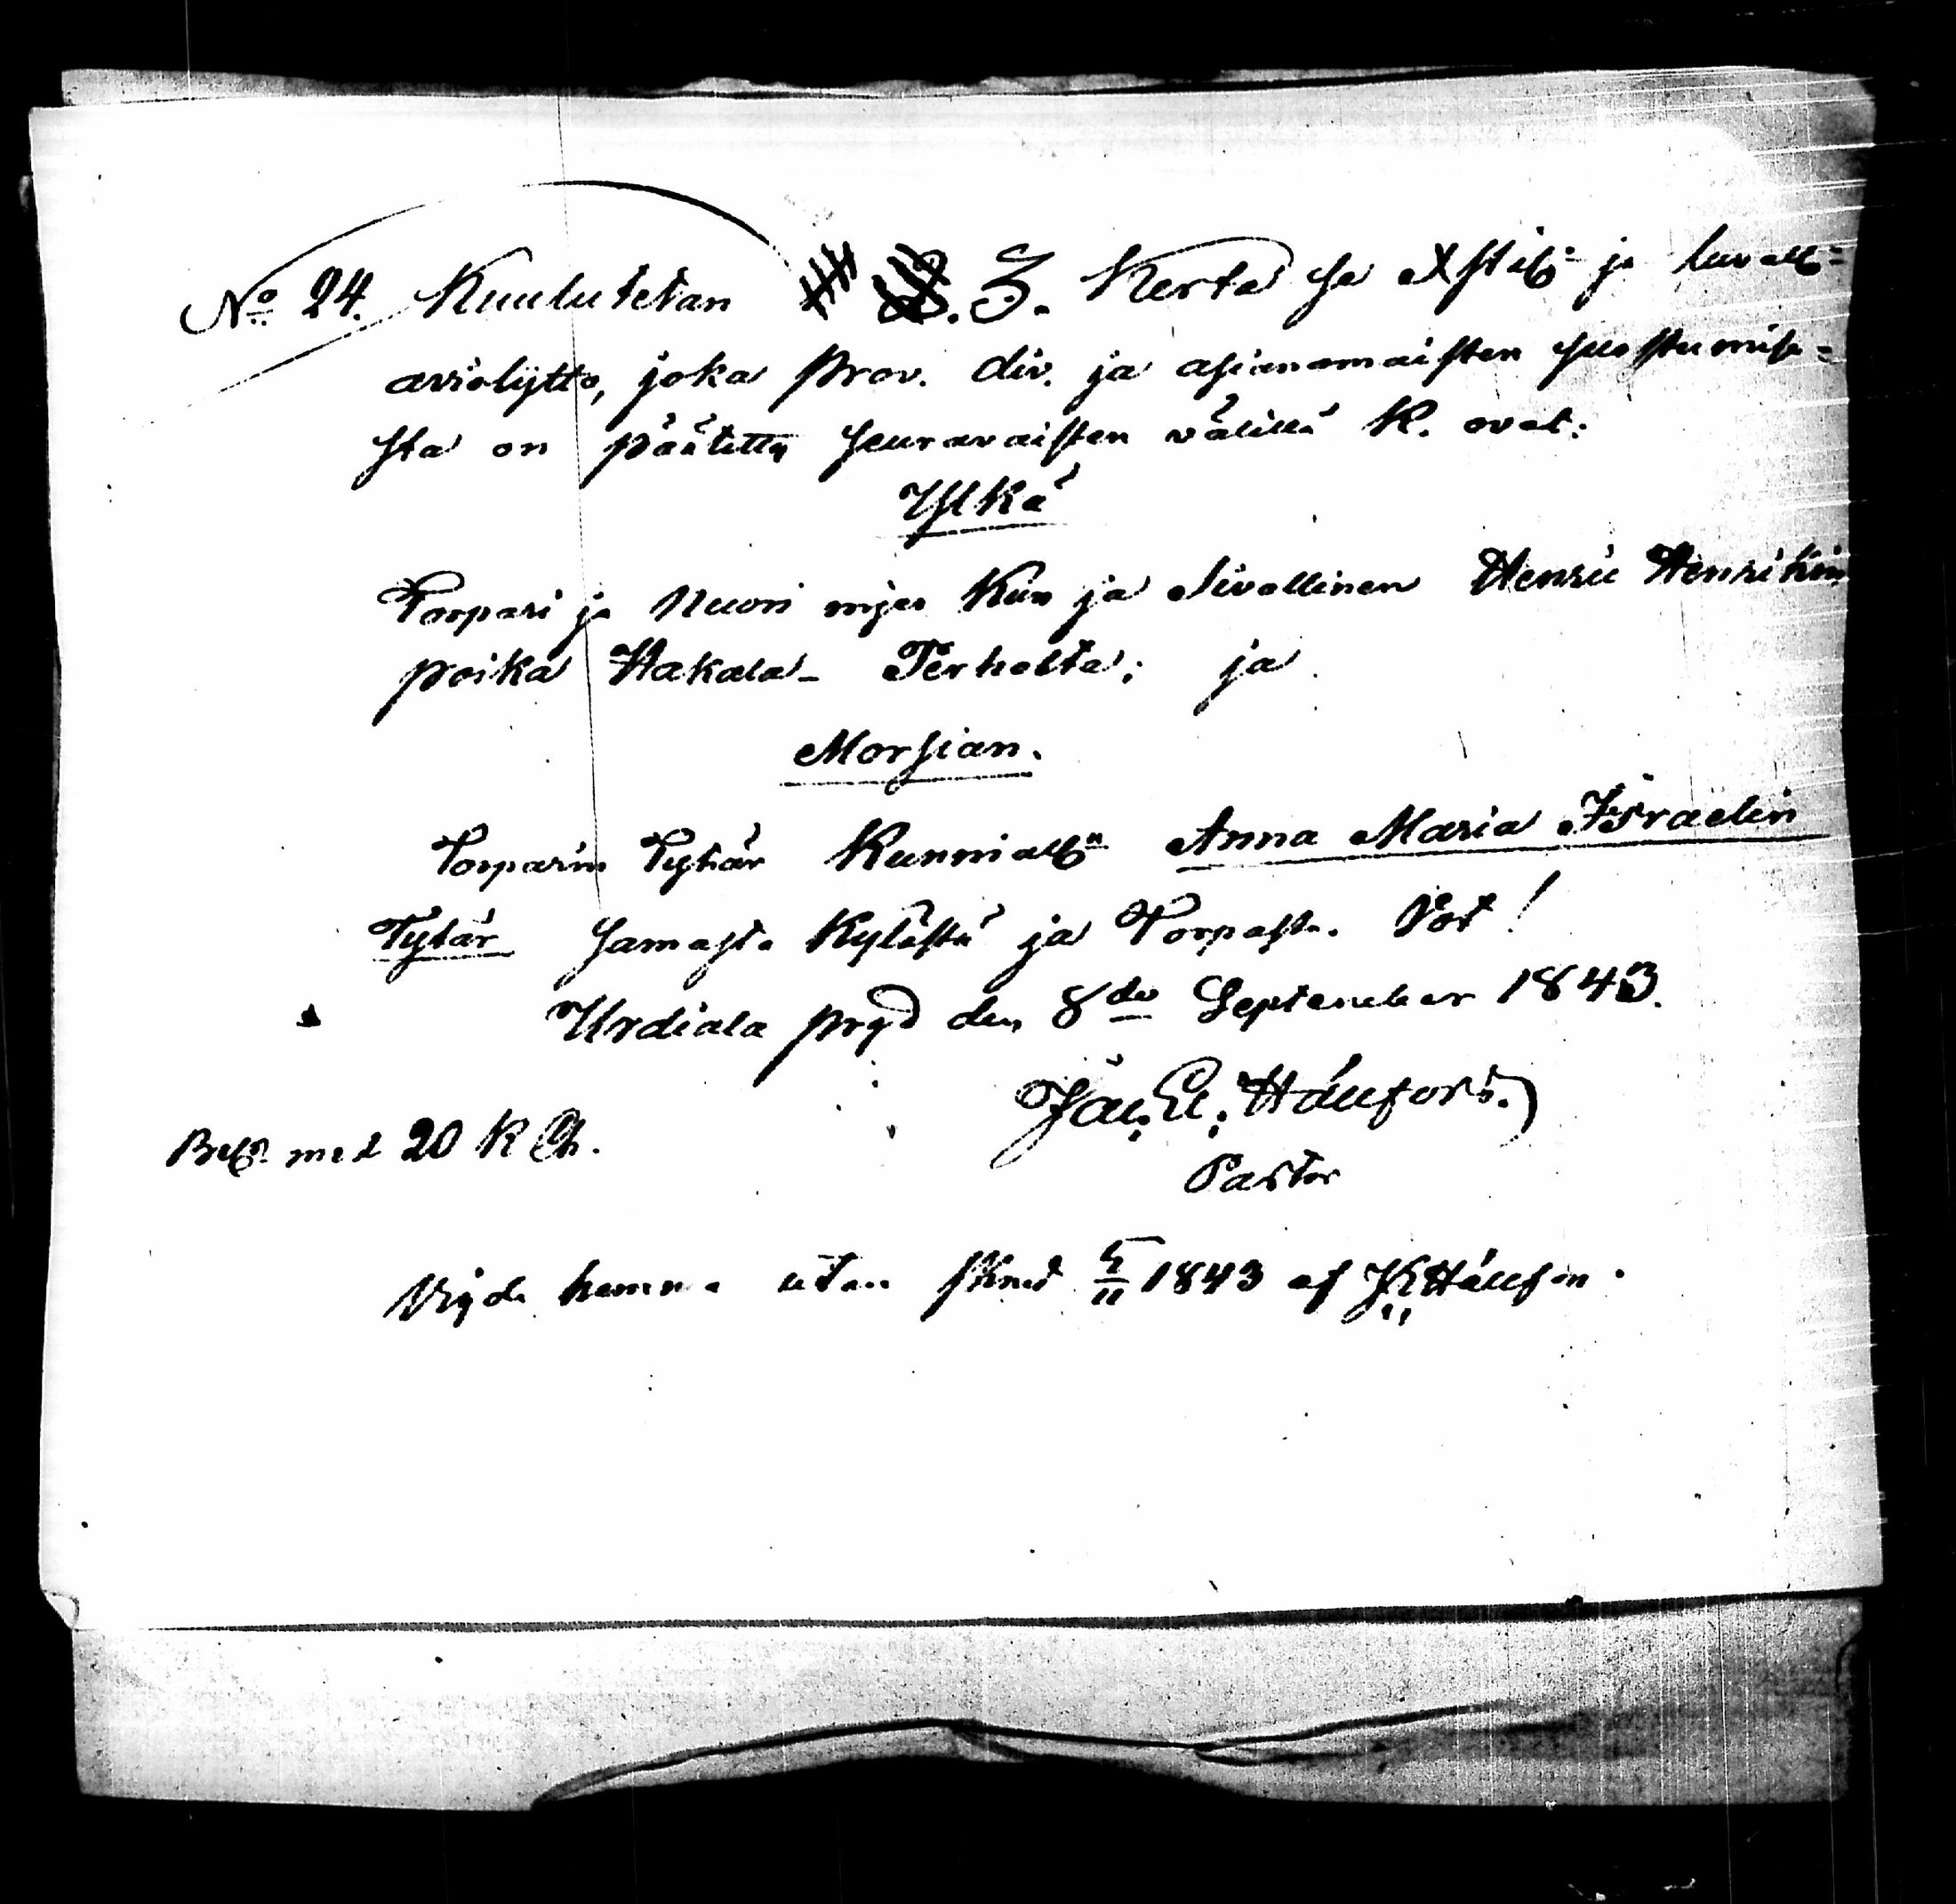 No 24. Kuulutetan 3. Kerta se Xstill: ja luvall:
aviolijtto, joka prov. div. ja asianomaisten suostumise=
sta on päätetty seuravaisten välillä K. ovat:
Ylkä
Torpari ja Nuori mjes Kun ja Sivallinen Henric Henrikin
poika Hakala - Terholta; ja
Morsian.
Torparin Tytär Kunniall:n Anna Maria Israelin
Tytär samasta Kylästä ja Torpasta.
Urdiala prgd den 8de September 1843.
Jac. Ed. Hällfors.
Pastor
Bet. med 20 K
Vigde hemma utan 1843 af Hällfors.